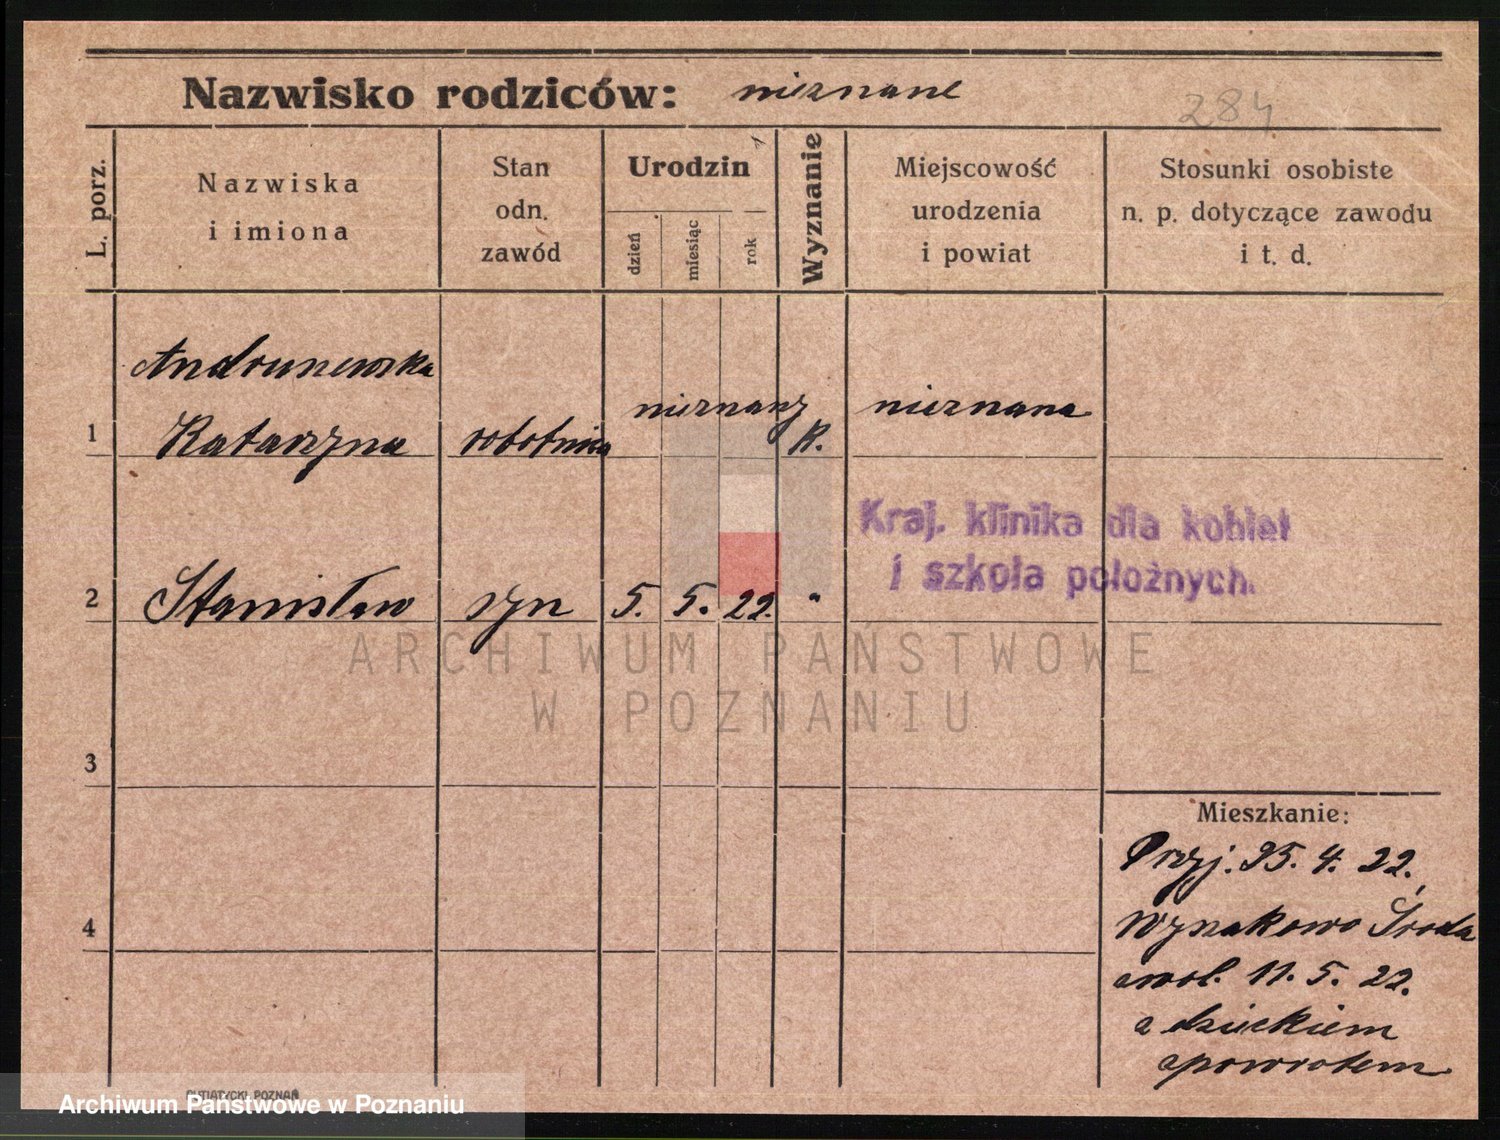 Nazwisko rodziców: nieznane
284
L. porz.
Nazwiska
i imiona
Stan
odn.
zawód
Urodzin
dzień
miesiąc
rok
Wyznanie
Miejscowość
urodzenia
i powiat
Stosunki osobiste
n. p. dotyczące zawodu
i t. d.
Andrunewska
1 Katarzyna robotnica nieznany K. nieznana
Kraj. klinika dla kobiet
i szkoła położnych.
2 Stanisław syn 5. 5. 22. "
ARCHIWUM PAŃSTWOWE
W POZNANIU
3
4
Mieszkanie:
Przyj. 25. 4. 22.
Środa
zwol. 11. 5. 22.
z dzieckiem
zpowrotem
PUTIATYCKI, POZNAŃ
Archiwum Państwowe w Poznaniu